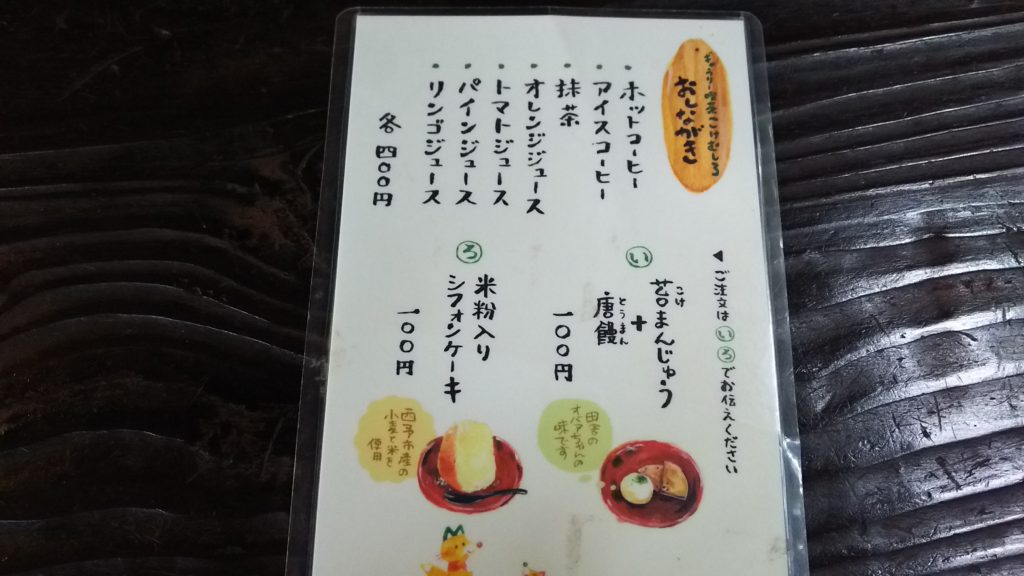 ギャラリー喫茶こけむしろ
おしながき
・ホットコーヒー
・アイスコーヒー
・抹茶
・オレンジジュース
・トマトジュース
・パインジュース
・リンゴジュース
各 四〇〇円
◀ご注文は い ろ でお伝えください
い
苔まんじゅう
こけ
+
唐饅
とうまん
一〇〇円
田舎の
オバアちゃんの
味です。
ろ
米粉入り
シフォンケーキ
一〇〇円
西予市産の
小麦と米を
使用